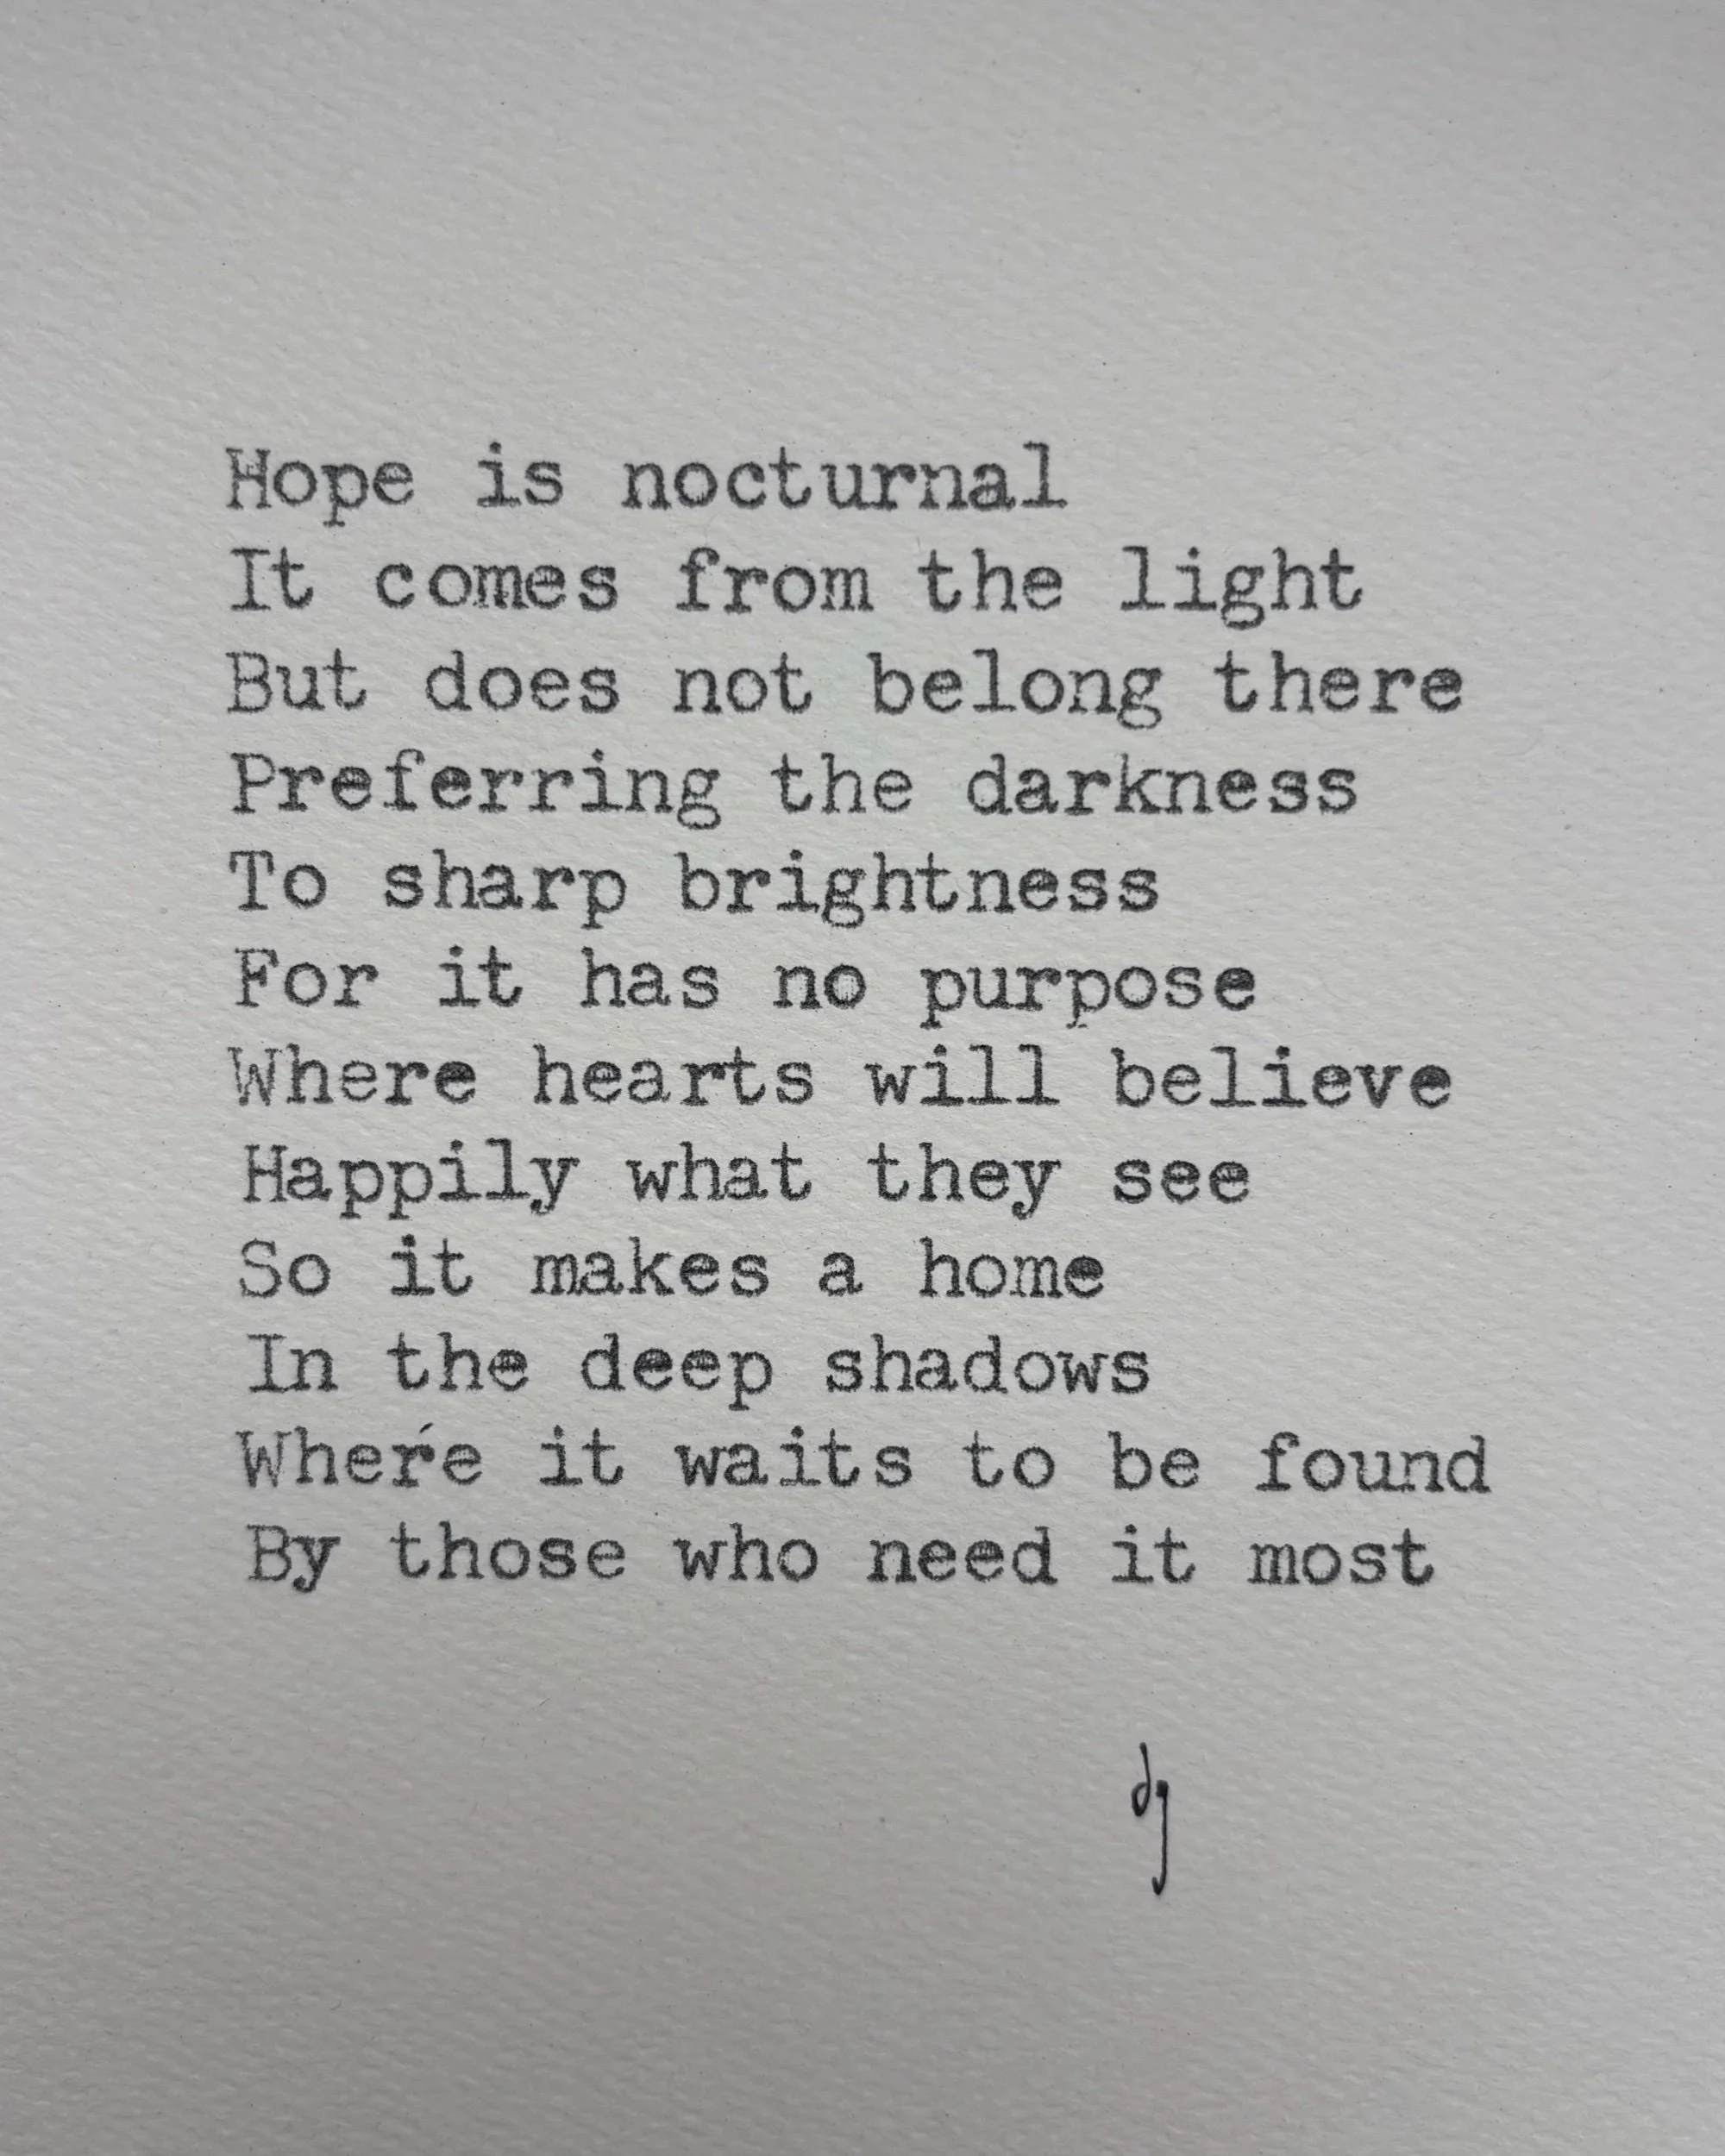 Hope is nocturnal
It comes from the light
But does not belong there
Preferring the darkness
To sharp brightness
For it has no purpose
Where hearts will believe
Happily what they see
So it makes a home
In the deep shadows
Where it waits to be found
By those who need it most
dg